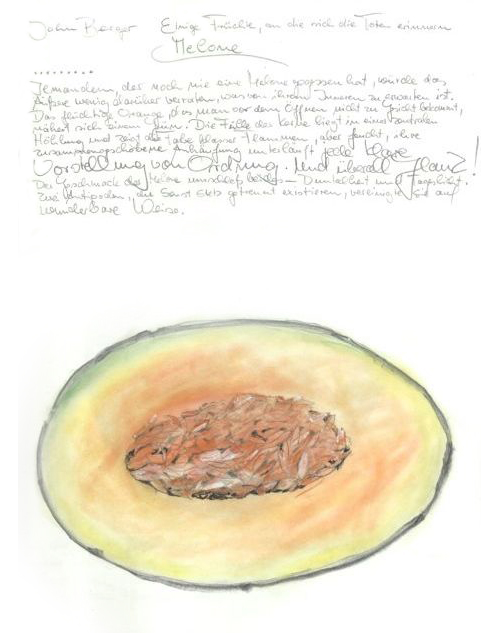 John Berger Einige Früchte, an die sich die Toten erinnern
Melone
Jemandem, der noch nie eine Melone gegessen hat, würde das
Äußere wenig darüber verraten, was von ihrem Inneren zu erwarten ist.
Das feuchtige Orange, das man vor dem Öffnen nicht zu Gesicht bekommt,
nähert sich einem Grün. Die Fülle der Kerne liegt in einer zentralen
Höhlung und zeigt die Farbe blasser Flammen, aber feucht, ihre
zusammengeschobene Anhäufung unterläuft jede klare
Vorstellung von Ordnung. Und überall Glanz!
Der Geschmack der Melone umschloß beides – Dunkelheit und Tageslicht.
Zwei Antipoden, die sonst stets getrennt existieren, vereinigte sie auf
wunderbare Weise.